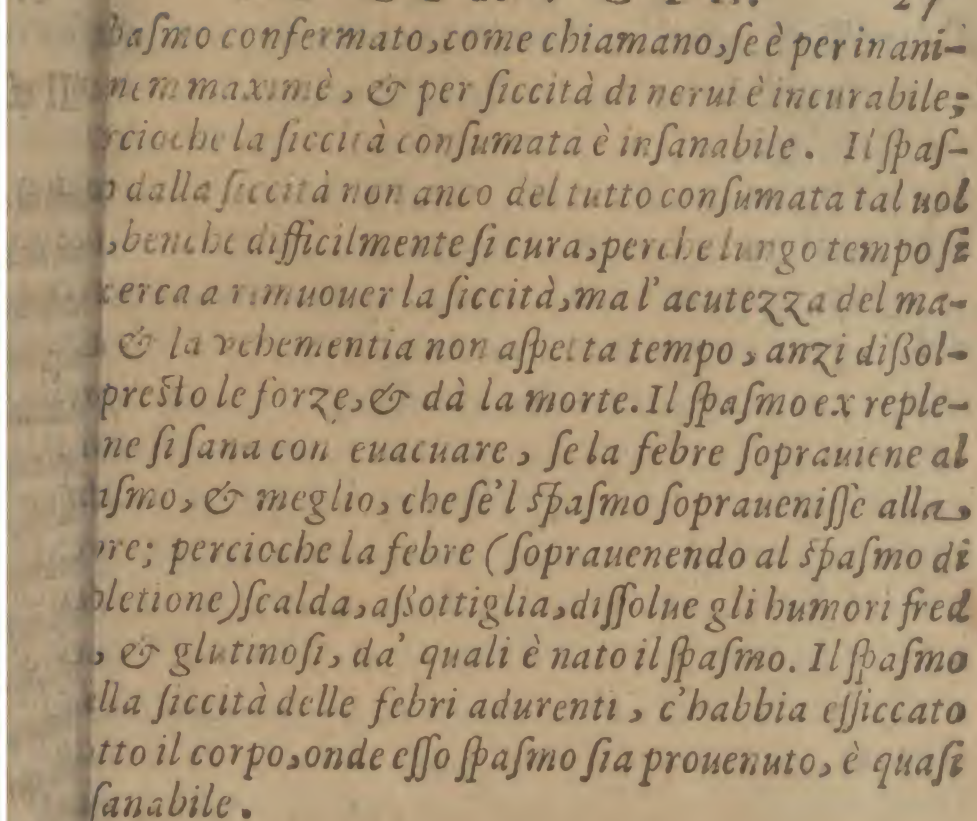 baſmo confermato, come chiamano, ſe è per inani-
nem maximè, & per ſiccità di nerui è incurabile;
rcioche la ſiccità conſumata è inſanabile. Il ſpaſ-
o dalla ſiccità non anco del tutto conſumata tal uol
, benche difficilmente ſi cura, perche lungo tempo ſi
cerca a rimuouer la ſiccità, ma l'acutezza del ma-
& la vehementia non aſpetta tempo, anzi diſſol-
preſto le forze, & dà la morte. Il ſpaſmo ex reple-
ne ſi ſana con euacuare, ſe la febre ſoprauiene al
aſmo, & meglio, che ſe'l ſpaſmo ſopraueniſſe alla
bre; percioche la febre (ſoprauenendo al ſpaſmo di
pletione) ſcalda, aſſottiglia, diſſolue gli humori fred
, & glutinoſi, da' quali è nato il ſpaſmo. Il ſpaſmo
ella ſiccità delle febri adurenti, c'habbia eſſiccato
tto il corpo, onde eſſo ſpaſmo ſia prouenuto, è quaſi
ſanabile.